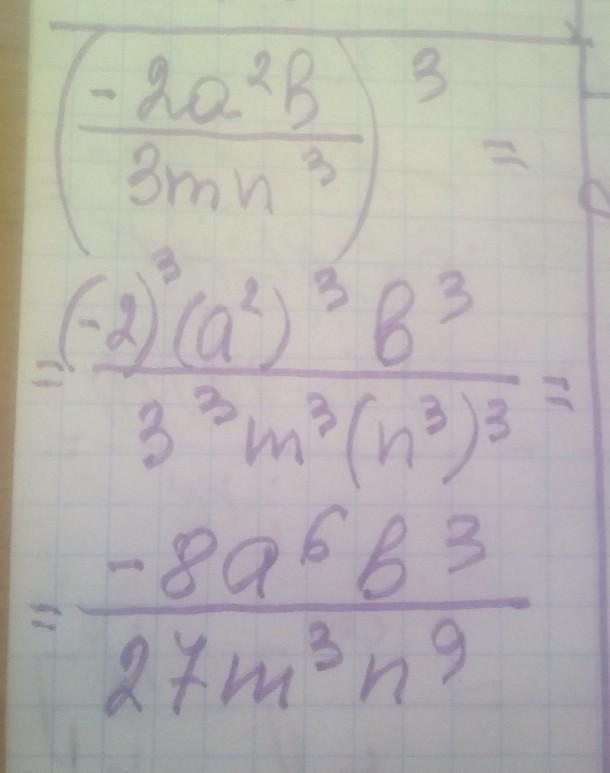 (-2a²b / 3mn³)³ =
= (-2)³(a²)³b³ / 3³m³(n³)³ =
= -8a⁶b³ / 27m³n⁹